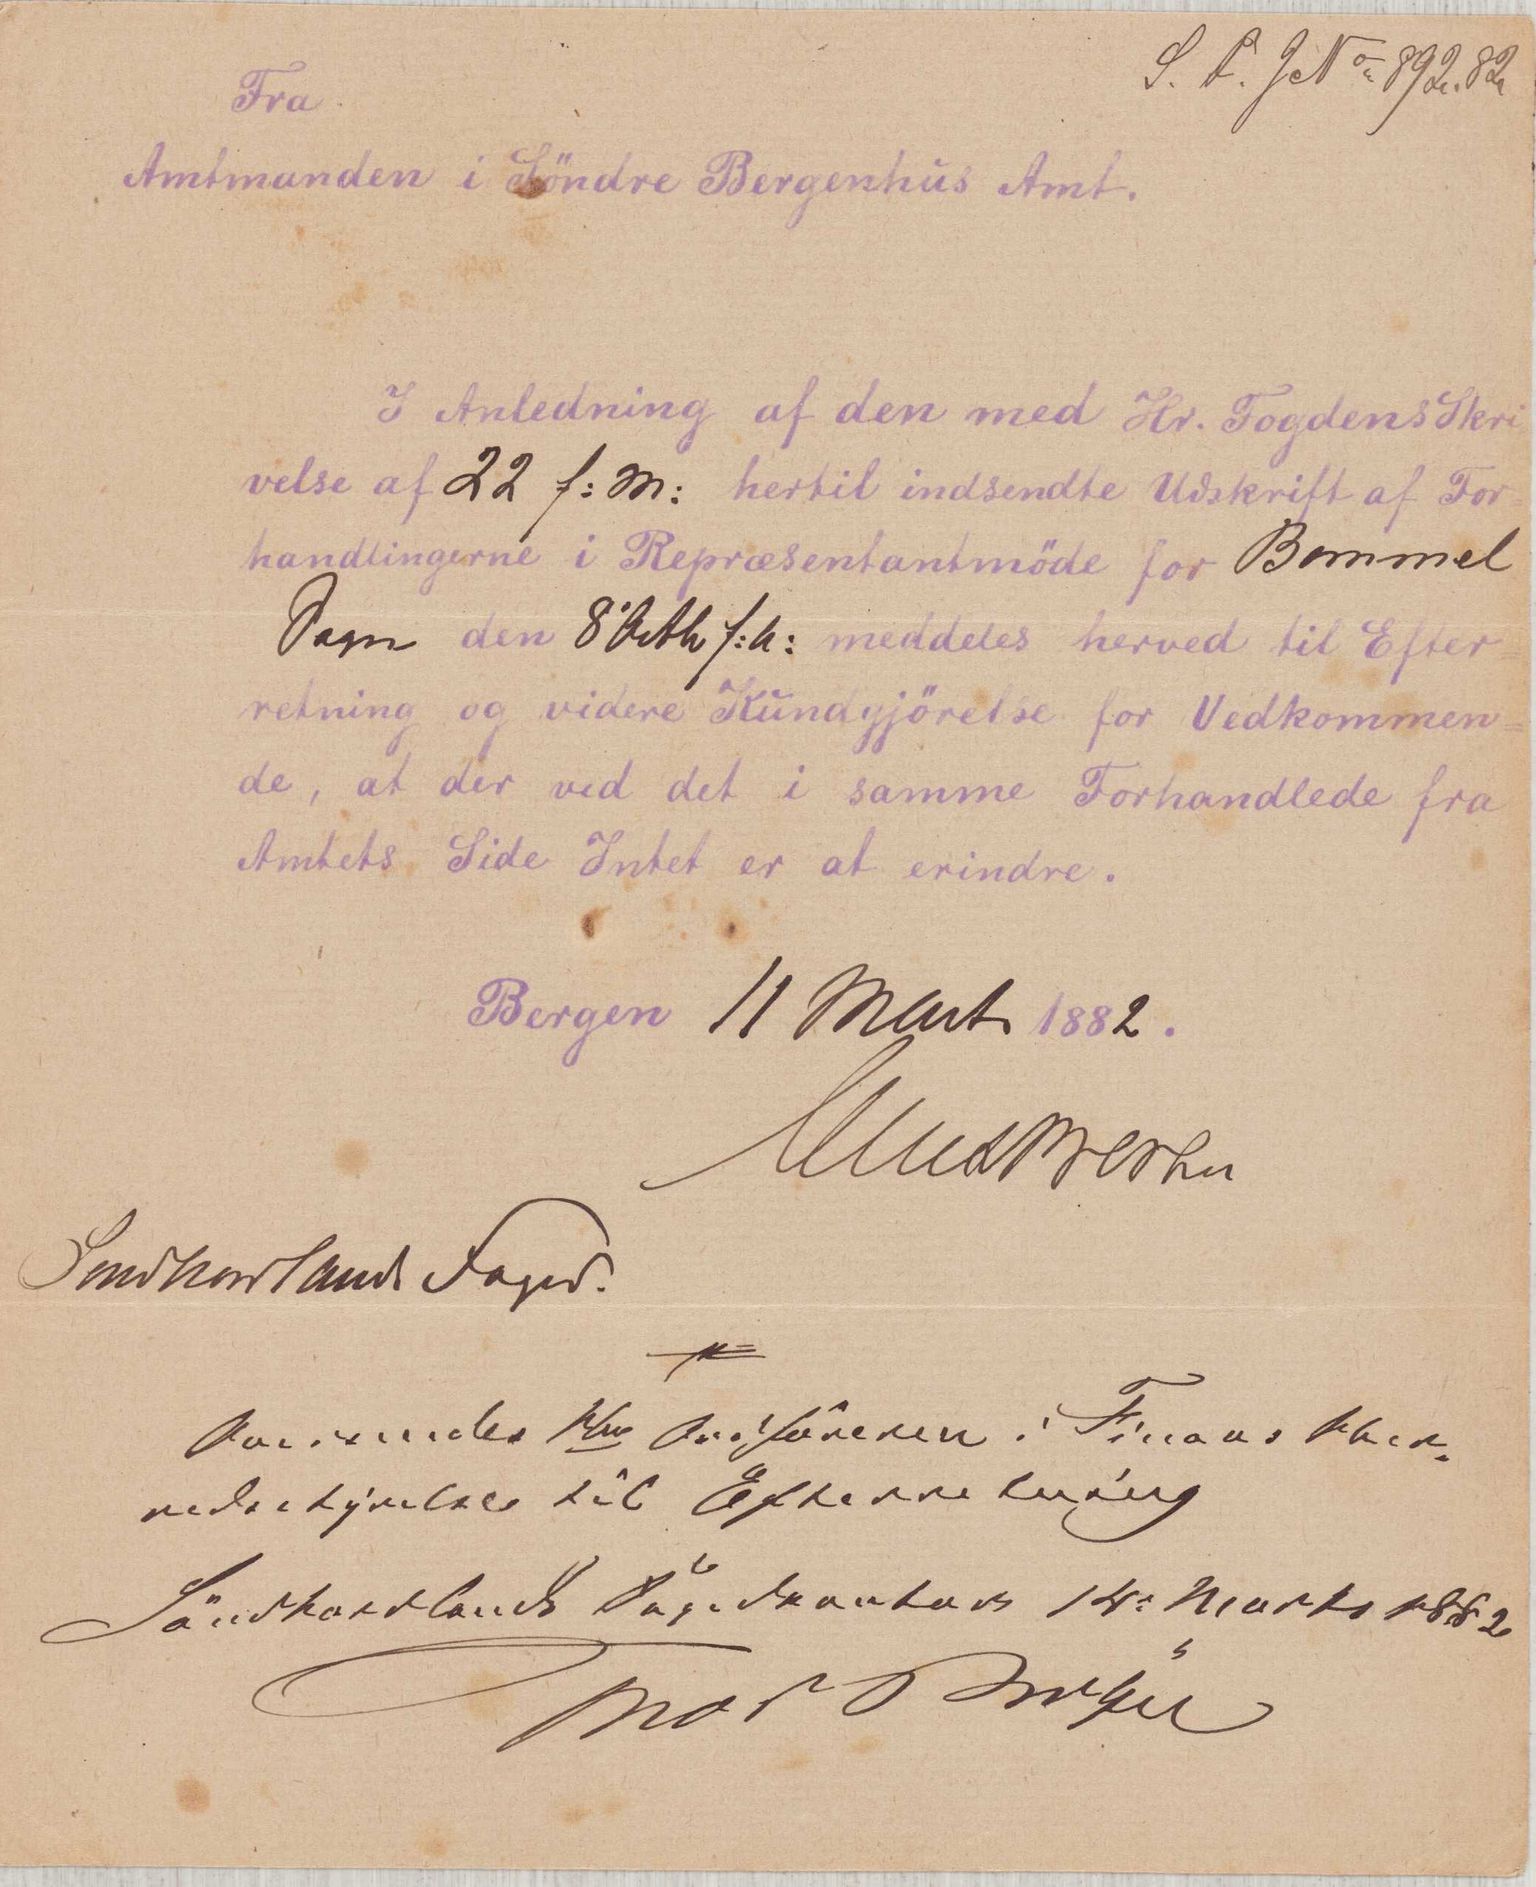 S. F. J. No 892. 82
Fra
Amtmanden i Söndre Bergenhus Amt.
I Anledning af den med Hr. Fogdens Skri
velse af 22 f: m: hertil indsendte Udskrift af For-
handlingerne i Repræsentantmöde for Bommel
Sogn den 8 Octb f: a: meddeles herved til Efter=
retning og videre Kundgjörelse for Vedkommen=
de, at der ved det i samme Forhandlede fra
Amtets Side Intet er at erindre.
Bergen 11 Marts 1882.
Söndhordlands Foged.
Hr. Ordföreren i Finaas Her-
redsstyrelse til Efterretning
Söndhordlands Fogedkontor 14: Marts 1882